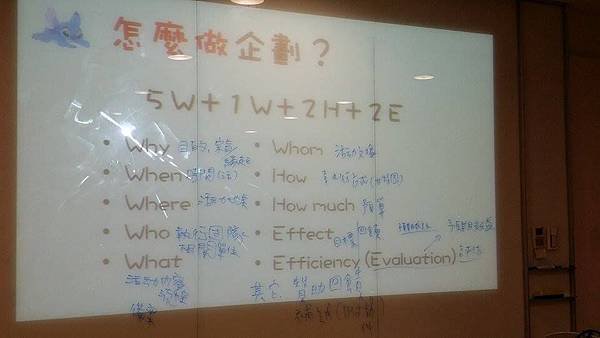 怎麼做企劃?
5W+1W+2H+2E
• Why 目的、宗旨
緣起
• When 時間(流)
• Where 活動地點
• Who 執行團隊
相關單位
• What
活動內容
流程
備案
• Whom 活動文樣
• How
• How much 預算
• Effect 目標 回饋
• Efficiency (Evaluation) 評估
預期成效
其它 贊助回饋